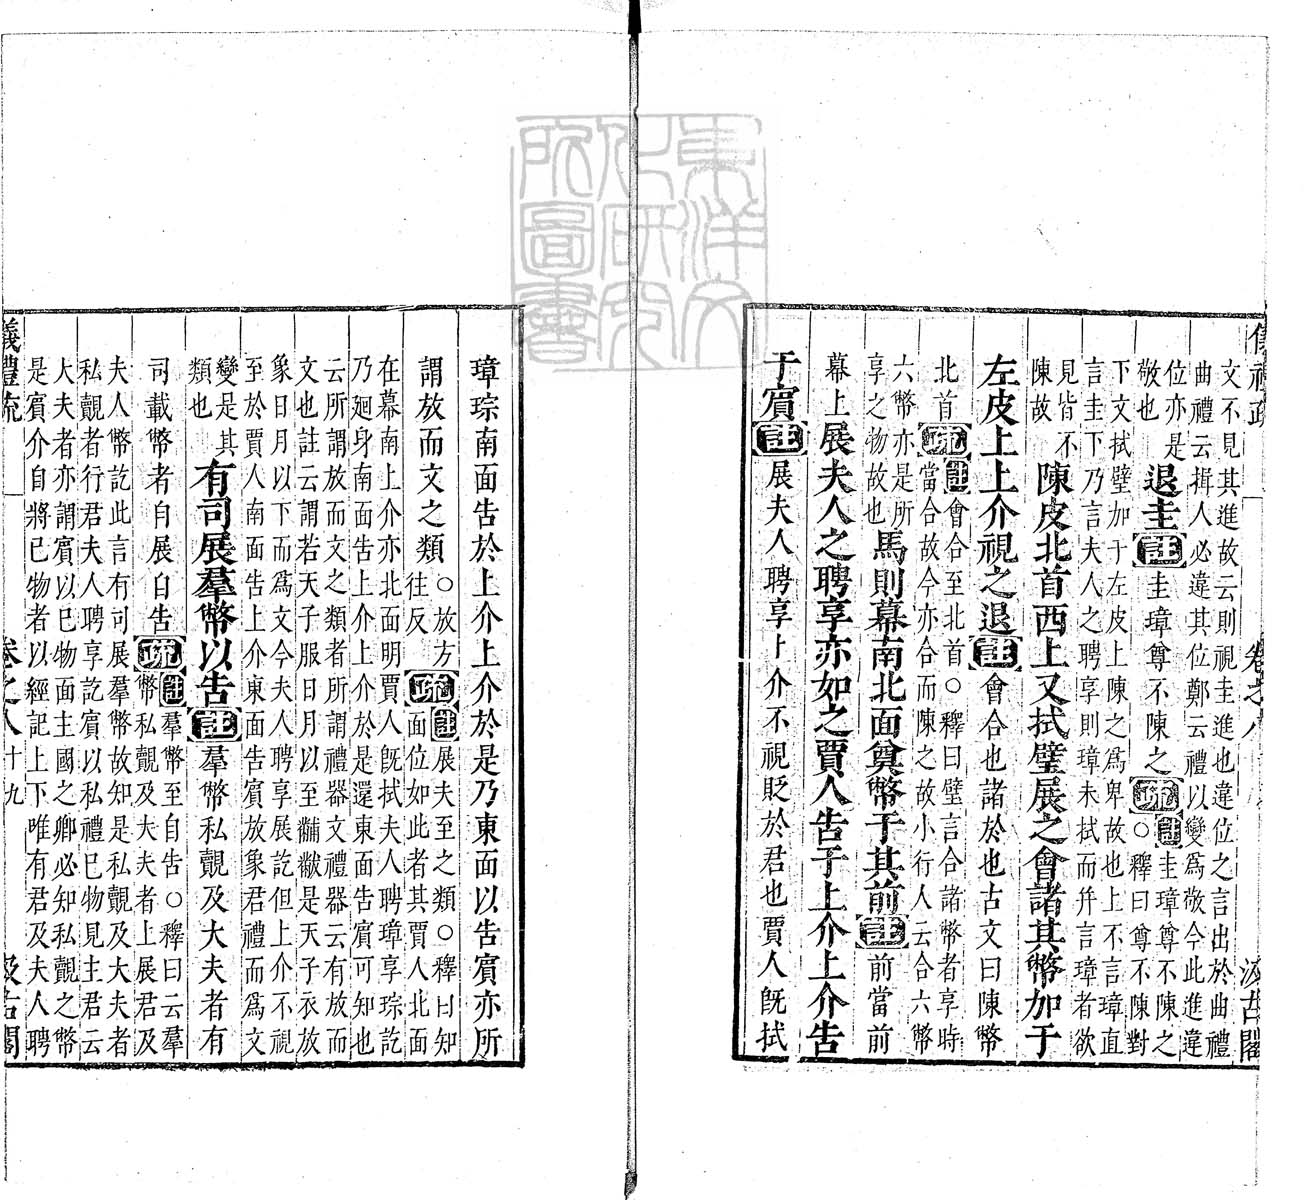 儀禮疏 卷之八 汲古閣
文不見其進故云則視圭進也違位之言出於曲禮
曲禮云揖人必違其位鄭云禮以變爲敬今此進違
位亦是
敬也
退圭註圭璋尊不陳之疏註圭璋尊不陳之
○釋曰尊不陳對
下文拭璧加于左皮上陳之爲卑故也上不言璋直
言圭下乃言夫人之聘享則璋未拭而幷言璋者欲
見皆不
陳故
陳皮北首西上又拭璧展之會諸其幣加于
左皮上上介視之退註會合也諸於也古文曰陳幣
北首疏註會合至北首○釋曰璧言合諸幣者享時
當合故今亦合而陳之故小行人云合六幣
六幣亦是所
享之物故也
馬則幕南北面奠幣于其前註前當前
幕上展夫人之聘享亦如之賈人告于上介上介告
于賓註展夫人聘享上介不視貶於君也賈人旣拭
璋琮南面告於上介上介於是乃東面以告賓亦所
謂放而文之類
○放方
往反
疏註展夫至之類○釋曰知
面位如此者其賈人北面
在幕南上介亦北面明賈人旣拭夫人聘璋享琮訖
乃廻身南面告上介上介於是還東面告賓可知也
云所謂放而文之類者所謂禮器文禮器云有放而
文也註云謂若天子服日月以至黼黻是天子衣放
象日月以下而爲文今夫人聘享展訖但上介不視
至於賈人南面告上介東面告賓放象君禮而爲文
變是其
類也
有司展羣幣以告註羣幣私覿及大夫者有
司載幣者自展自告疏註羣幣至自告○釋曰云羣
幣私覿及夫夫者上展君及
夫人幣訖此言有司展羣幣故知是私覿及大夫者
私覿者行君夫人聘享訖賓以私禮已物見主君云
大夫者亦謂賓以已物面主國之卿必知私覿之幣
是賓介自將已物者以經記上下唯有君及夫人聘
儀禮疏 卷之八 十九 汲古閣
東洋文化研究所圖書